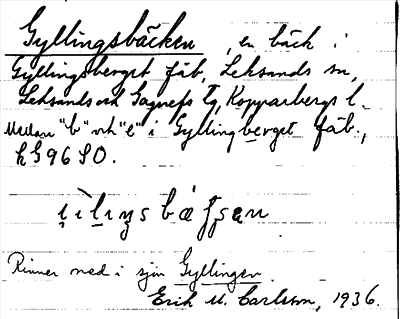 Gyllingsbäcken, en bäck i
Gyllingsberget fäb, Leksands sn,
Leksands och Gagnefs tg, Kopparbergs l.
Mellan "b" och "e" i Gyllingberget fäb.,
h G 96 S O.
Rinner ned i sjön Gyllingen.
Erik M. Carlsson, 1936.